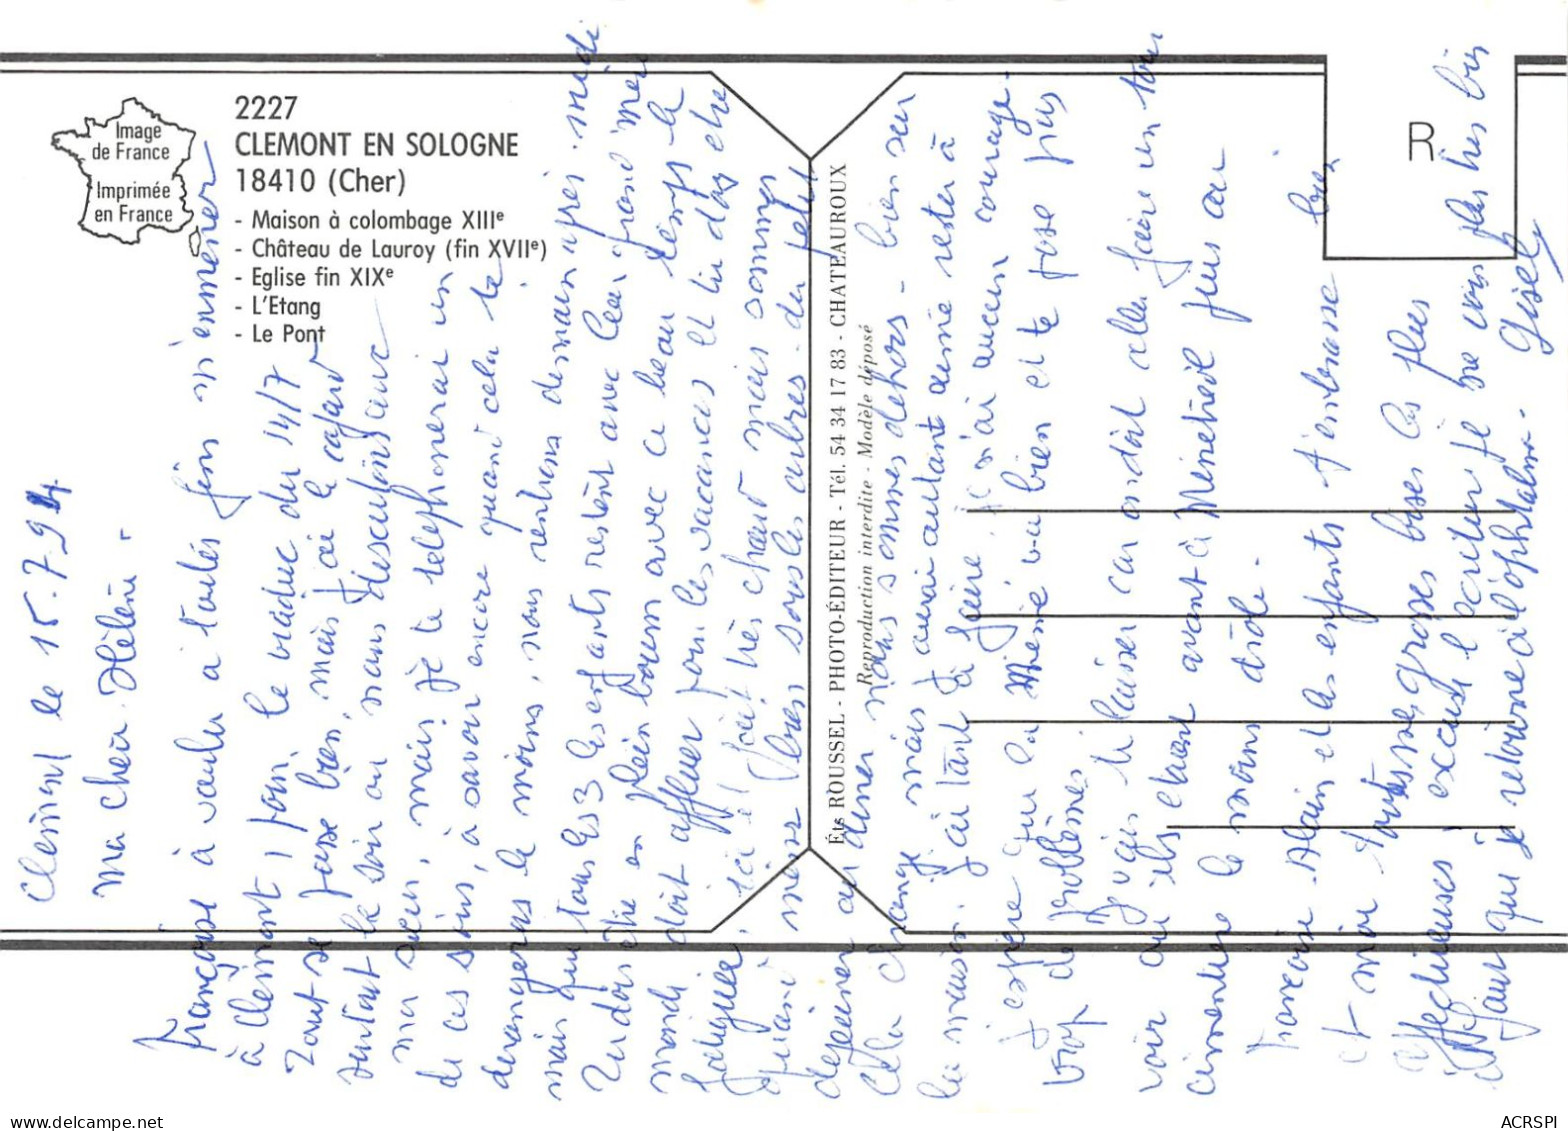 Image
de France
Imprimée
en France
2227
CLEMONT EN SOLOGNE
18410 (Cher)
- Maison à colombage XIIIe
- Château de Lauroy (fin XVIIe)
- Eglise fin XIXe
- L'Etang
- Le Pont
R
Éts ROUSSEL - PHOTO-ÉDITEUR - Tél. 54 34 17 83 - CHATEAUROUX
Reproduction interdite - Modèle déposé
Clémont le 15.7.94
Ma chère Hélène.
Françoise à voulu a toutes fins m'emmener
à Clémont, pour le viaduc du 14/7
Tout se passe bien, mais j'ai le cafard
surtout le soir ou nous discutons avec
ma sœur, mais je te telephonerai un
de ces soirs, à savoir encore quand cela te
derangeras le moins, nous rentrons demain après-midi
mais tous les 3 les enfants restent avec leur grand mère
Tu dois être en plein boum avec ce beau temps le
monde doit affluer pour les vacances et tu dois etre
fatiguée, ici il fait très chaud mais sommes
quand même bien sous les arbres. du petit
dejeuner au diner nous sommes dehors - bien sur
cela change mais j'aurai autant aimé rester à
la maison. J'ai tant à faire, je n'ai aucun courage.
J'espère que la Mémé va bien et te pose pas
trop de problèmes
Je vais te laisser car on doit aller faire un tour
voir ou ils etaient avant à Ménétréol puis au
cimentière le moins drôle.
Françoise Alain et les enfants t'embrasse
et moi toutes mes grosses bises les plus
affectueuses excuse l'écriture je ne vois plus très bien
il faut que je retourne à l'ophtalmo. Gisèle
www.delcampe.net
ACRSPI